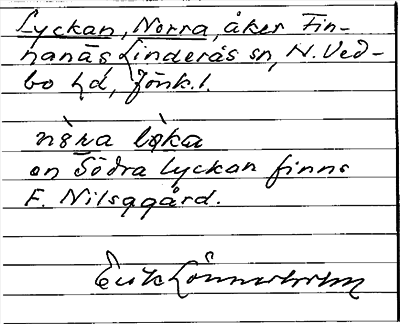 Lyckan, Norra, åker Fin-
nanäs, Linderås sn, N. Ved-
bo hd, Jönk. l.
nè̱ra lə̀ka
en Södra Lyckan finns
F. Nilsagård.
Erik Lönnerholm